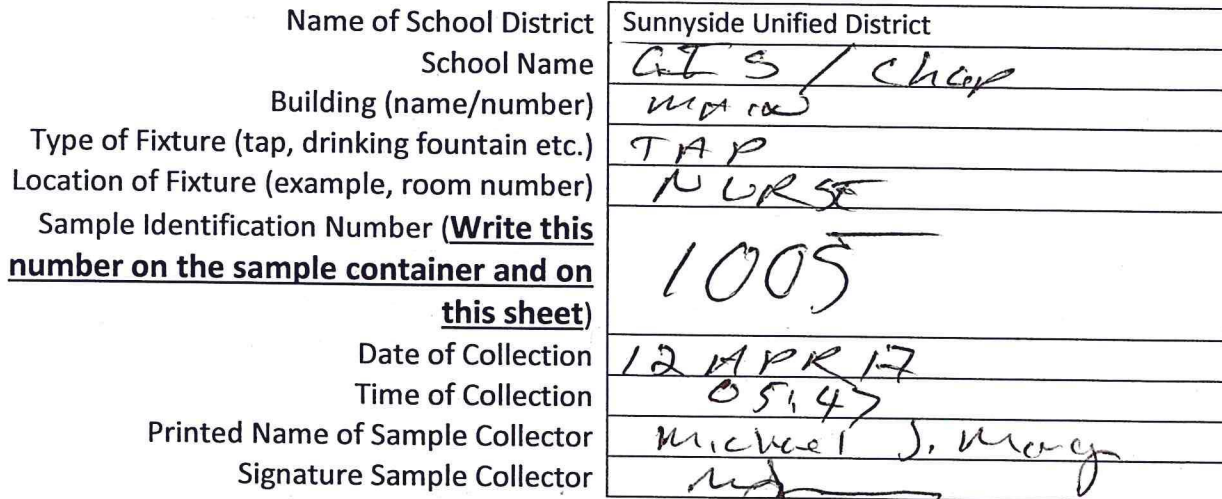 Name of School District Sunnyside Unified District
School Name / Chap
Building (name/number) MAIN
Type of Fixture (tap, drinking fountain etc.) TAP
Location of Fixture (example, room number) NURSE
Sample Identification Number (Write this
number on the sample container and on
this sheet) 1005
Date of Collection 12 APR 17
Time of Collection 05:47
Printed Name of Sample Collector Michael J.
Signature Sample Collector